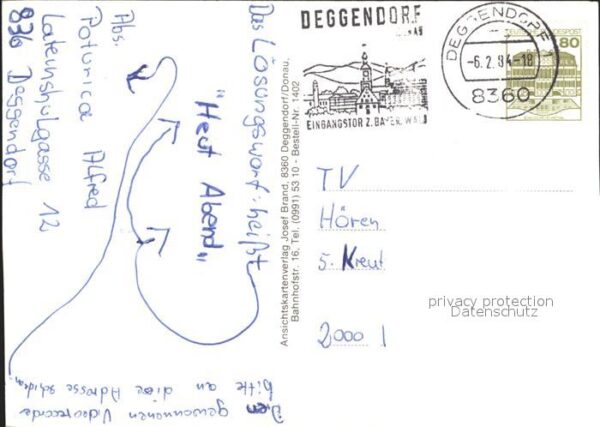 Das Lösungswort: heißt
"Heut Abend"
Abs.
Poturica Alfred
Lateinschulgasse 12
836 Deggendorf
Den gewonnenen Videorecorde
bitte an diese Adresse schicken.
Ansichtskartenverlag Josef Brand, 8360 Deggendorf/Donau,
Bahnhofstr. 16, Tel. (0991) 53 10 - Bestell-Nr. 1402
DEGGENDORF
EINGANGSTOR Z. BAYER. WALD
DEGGENDORF
-6.2.84-18
8360
DEUTSCHE BUNDESPOST
80
TV
Hören
5. Kreut
2000 1
privacy protection
Datenschutz